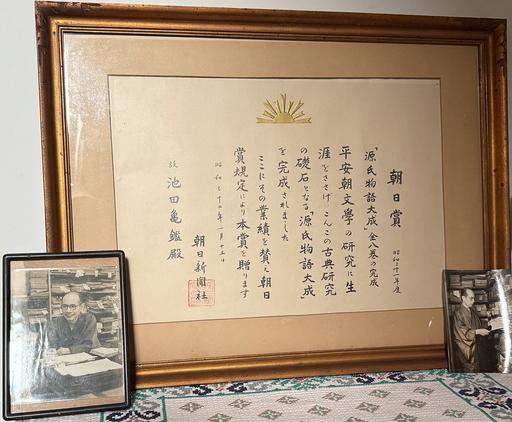 朝日賞
昭和三十一年度
『源氏物語大成』全八巻の完成
平安朝文學の研究に生
涯をささげ こんごの古典研究
の礎石となる『源氏物語大成』
を完成されました
ここにその業績を賛え 朝日
賞規定により本賞を贈ります
昭和三十二年一月十五日
朝日新聞社
故 池田亀鑑殿